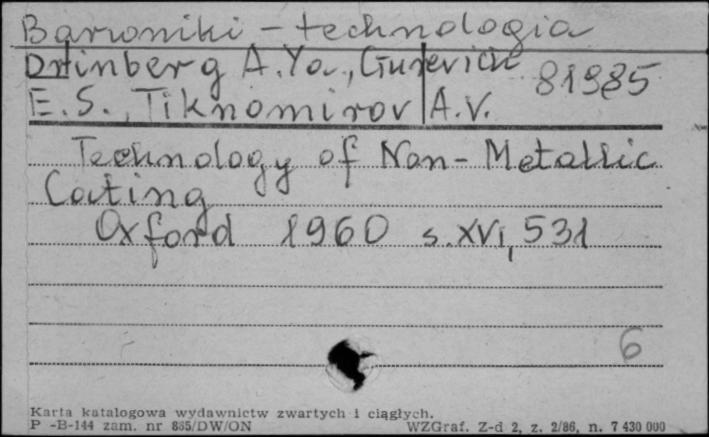 Barwniki - technologia
Drinberg A.Ya., Gurevich
81985
E.S., Tiknomirov A.V.
Technology of Non-Metallic
Coating
Oxford 1960 s. XVI, 531
6
Karta katalogowa wydawnictw zwartych i ciągłych.
P -B-144 zam. nr 835/DW/ON WZGraf. Z-d 2, z. 2/86, n. 7 430 000